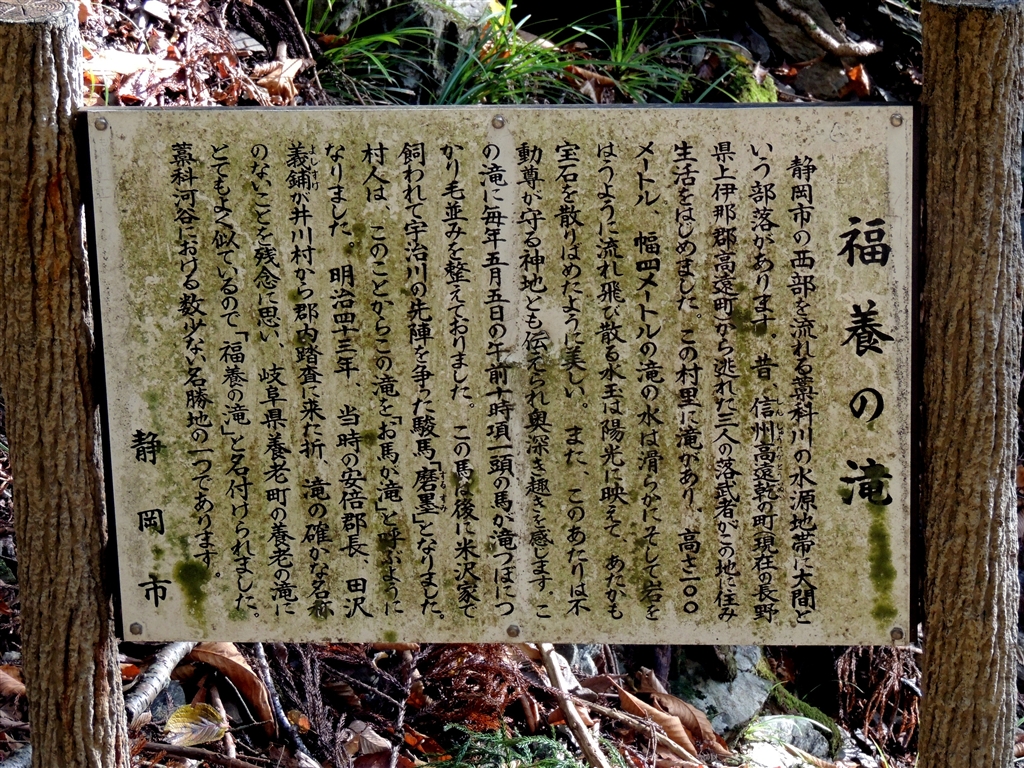 福養の滝
静岡市の西部を流れる藁科川の水源地帯に大間と
いう部落があります。昔、信州高遠乾の町現在の長野
県上伊那郡高遠町から逃れた三人の落武者がこの地に住み
生活をはじめました。この村里に滝があり、高さ一〇〇
メートル、幅四メートルの滝の水は滑らかにそして岩を
はうように流れ飛び散る水玉は陽光に映えて、あたかも
宝石を散りばめたように美しい。また、このあたりは不
動尊が守る神地とも伝えられ奥深き趣きを感じます。こ
の滝に毎年五月五日の午前十時項一頭の馬が滝つぼにつ
かり毛並みを整えておりました。この馬は後に米沢家で
飼われて宇治川の先陣を争った駿馬「磨墨」となりました。
村人は、このことからこの滝を「お馬が滝」と呼ぶように
なりました。明治四十三年、当時の安倍郡長、田沢
義鋪が井川村から郡内踏査に来た折、滝の確かな名称
のないことを残念に思い、岐阜県養老町の養老の滝に
とてもよく似ているので「福養の滝」と名付けられました。
藁科河谷における数少ない名勝地の一つであります。
静岡市